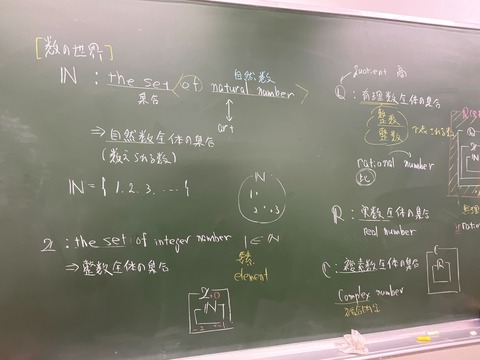 [数の世界]
ℕ : the set of natural number
集合
自然数
art
⇒ 自然数全体の集合
(数えられる数)
ℕ = { 1, 2, 3, … }
ℕ
1,
2, 3
ℤ : the set of integer number
1 ∈ ℕ
⇒ 整数全体の集合
要素
element
ℤ
ℕ
Quotient 商
ℚ : 有理数全体の集合
整数
整数
で表される数
rational number
比
ℝ : 実数全体の集合
real number
ℂ : 複素数全体の集合
Complex number
ℂ
ℝ